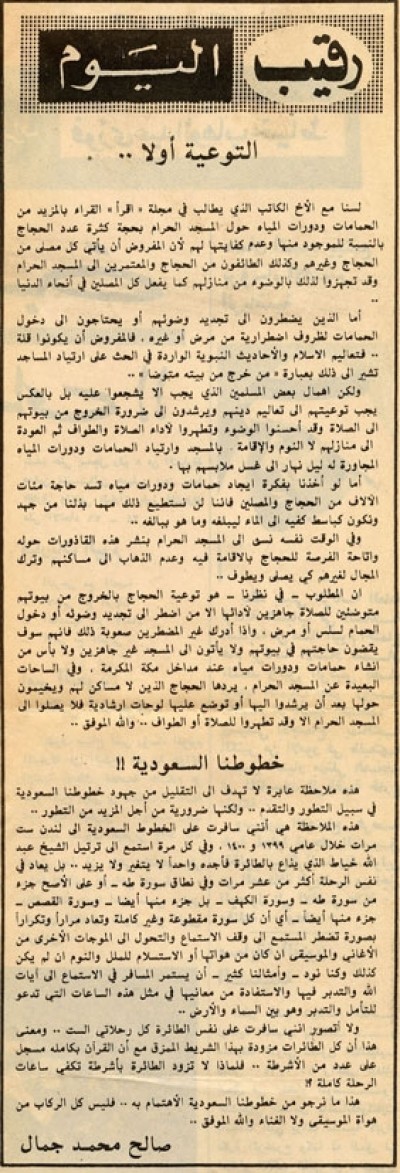 رقيب اليوم
التوعية أولا ..
لسنا مع الأخ الكاتب الذي يطالب في مجلة « اقرأ » القراء بالمزيد من
الحمامات ودورات المياه حول المسجد الحرام بحجة كثرة عدد الحجاج
بالنسبة للموجود منها وعدم كفايتها لهم لأن المفروض أن يأتي كل مصلى من
الحجاج وغيرهم وكذلك الطائفون من الحجاج والمعتمرين الى المسجد الحرام
وقد تجهزوا لذلك بالوضوء من منازلهم كما يفعل كل المصلين في أنحاء الدنيا
..
أما الذين يضطرون الى تجديد وضوئهم أو يحتاجون الى دخول
الحمامات لظروف اضطرارية من مرض أو غيره ، فالمفروض أن يكونوا قلة
.. فتعاليم الاسلام والأحاديث النبوية الواردة في الحث على ارتياد المساجد
تشير الى ذلك بعبارة « من خرج من بيته متوضا » ..
ولكن اهمال بعض المسلمين الذي يجب الا يشجعوا عليه بل بالعكس
يجب توعيتهم الى تعاليم دينهم ويرشدون الى ضرورة الخروج من بيوتهم
الى الصلاة وقد أحسنوا الوضوء وتطهروا لأداء الصلاة والطواف ثم العودة
الى منازلهم لا النوم والإقامة . بالمسجد وارتياد الحمامات ودورات المياه
المجاورة له ليل نهار الى غسل ملابسهم بها .
أما لو أخذنا بفكرة ايجاد حمامات ودورات مياه تسد حاجة مئات
الآلاف من الحجاج والمصلين فاننا لن نستطيع ذلك مهما بذلنا من جهد
ونكون كباسط كفيه الى الماء ليبلغه وما هو ببالغه ..
وفي الوقت نفسه نسئ الى المسجد الحرام بنشر هذه القاذورات حوله
واتاحة الفرصة للحجاج بالاقامة فيه وعدم الذهاب الى مساكنهم وترك
المجال لغيرهم كي يصلى ويطوف ..
ان المطلوب ــ في نظرنا ــ هو توعية الحجاج بالخروج من بيوتهم
متوضئين للصلاة جاهزين لأدائها الا من اضطر الى تجديد وضوئه أو دخول
الحمام لسلس أو مرض ، واذا أدرك غير المضطرين صعوبة ذلك فانهم سوف
يقضون حاجتهم في بيوتهم ولا يأتون الى المسجد غير جاهزين ولا بأس من
انشاء حمامات ودورات مياه عند مداخل مكة المكرمة ، وفي الساحات
البعيدة عن المسجد الحرام ، يردها الحجاج الذين لا مساكن لهم ويخيمون
حولها بعد أن يرشدوا اليها أو توضع عليها لوحات ارشادية فلا يصلوا الى
المسجد الحرام الا وقد تطهروا للصلاة أو الطواف .. والله الموفق ..
خطوطنا السعودية !!
هذه ملاحظة عابرة لا تهدف الى التقليل من جهود خطوطنا السعودية
في سبيل التطور والتقدم .. ولكنها ضرورية من أجل المزيد من التطور ..
هذه الملاحظة هي أنني سافرت على الخطوط السعودية الى لندن ست
مرات خلال عامي ١٣٩٩ و ١٤٠٠ ، وفي كل مرة استمع الى ترتيل الشيخ عبد
الله خياط الذي يذاع بالطائرة فأجده واحداً لا يتغير ولا يزيد .. بل يعاد في
نفس الرحلة أكثر من عشر مرات وفي نطاق سورة طه ــ أو على الأصح جزء
من سورة طه ــ وسورة الكهف ــ بل جزء منها أيضا ــ وسورة القصص ــ
جزء منها أيضاً ــ أي أن كل سورة مقطوعة وغير كاملة وتعاد مراراً وتكراراً
بصورة تضطر المستمع الى وقف الاستماع والتحول الى الموجات الأخرى من
الأغاني والموسيقى ان كان من هواتها أو الاستسلام للملل والنوم ان لم يكن
كذلك وكنا نود ــ وأمثالنا كثير ــ أن يستمر المسافر في الاستماع الى آيات
الله والتدبر فيها والاستفادة من معانيها في مثل هذه الساعات التي تدعو
للتأمل والتدبر وهو بين السماء والأرض ..
ولا أتصور انني سافرت على نفس الطائرة كل رحلاتي الست .. ومعنى
هذا أن كل الطائرات مزودة بهذا الشريط الممزق مع أن القرآن بكامله مسجل
على عدد من الأشرطة .. فلماذا لا تزود الطائرة بأشرطة تكفي ساعات
الرحلة كاملة ؟!
هذا ما نرجو من خطوطنا السعودية الأهتمام به .. فليس كل الركاب من
هواة الموسيقى ولا الغناء والله الموفق ..
صالح محمد جمال